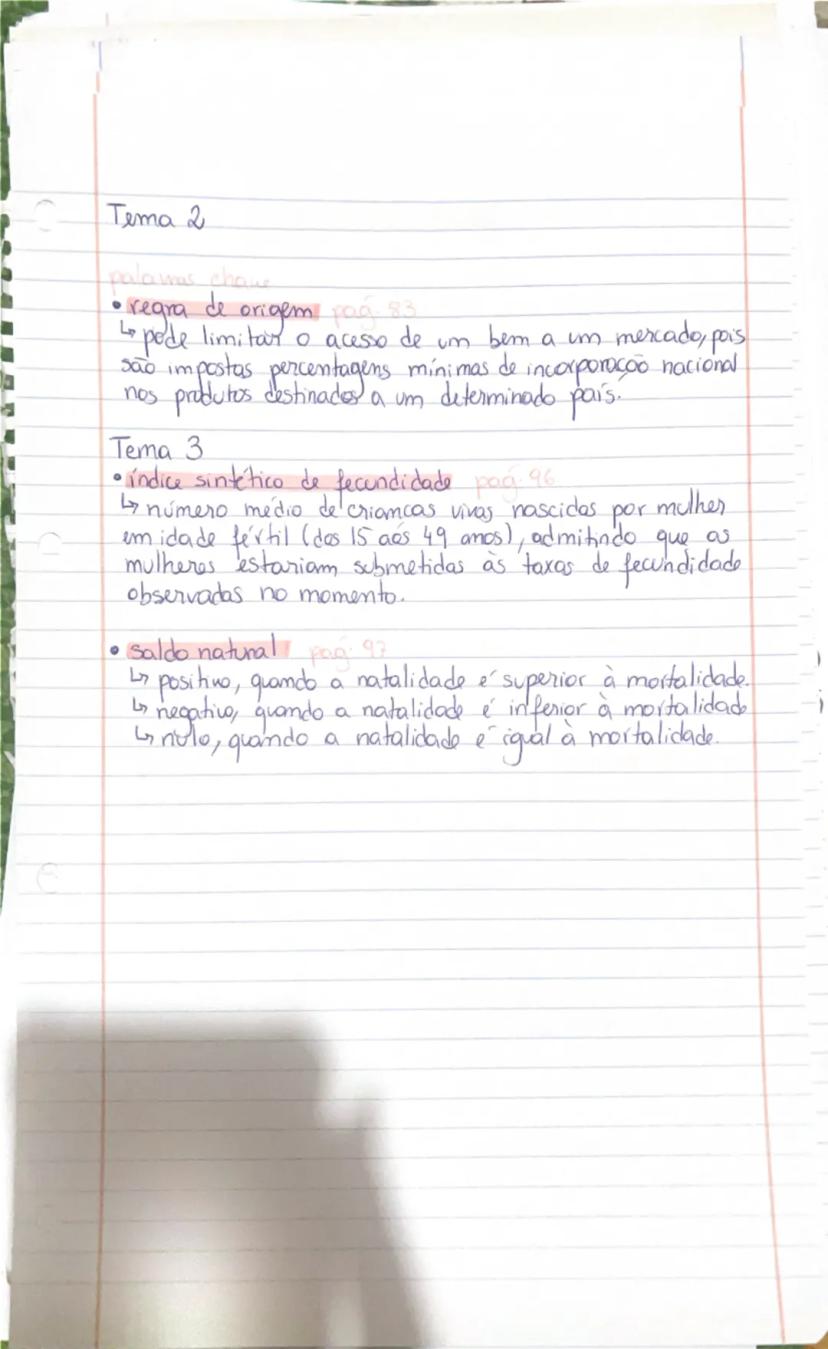 Tema 2
palavras chave
• regra de origem pág. 83
↳ pode limitar o acesso de um bem a um mercado, pois
são impostas percentagens mínimas de incorporação nacional
nos produtos destinados a um determinado país.
Tema 3
• índice sintético de fecundidade pág. 96
↳ número médio de crianças vivas nascidas por mulher
em idade fértil (dos 15 aos 49 anos), admitindo que as
mulheres estariam submetidas às taxas de fecundidade
observadas no momento.
• saldo natural pág. 97
↳ positivo, quando a natalidade é superior à mortalidade.
↳ negativo, quando a natalidade é inferior à mortalidade
↳ nulo, quando a natalidade é igual à mortalidade.